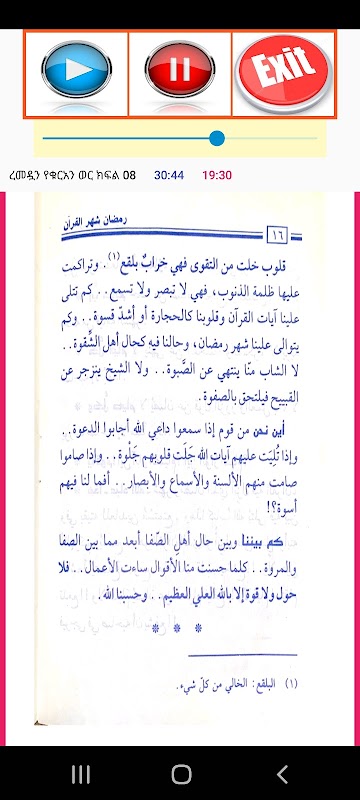 Exit
ረመዷን የቁርአን ወር ክፍል 08 30:44 19:30
رمضان شهر القرآن
١٦
قلوب خلت من التقوى فهي خرابٌ بلقع(١). وتراكمت
عليها ظلمة الذنوب، فهي لا تبصر ولا تسمع.. كم تتلى
علينا آيات القرآن وقلوبنا كالحجارة أو أشدّ قسوة.. وكم
يتوالى علينا شهر رمضان، وحالنا فيه كحال أهل الشِّقوة..
لا الشاب منّا ينتهي عن الصَّبوة.. ولا الشيخ ينزجر عن
القبيح فيلتحق بالصفوة.
أين نحن من قوم إذا سمعوا داعي الله أجابوا الدعوة..
وإذا تُلِيَت عليهم آيات الله جَلَت قلوبهم جَلْوة.. وإذا صاموا
صامت منهم الألسنة والأسماع والأبصار.. أفما لنا فيهم
أسوة؟!
كم بيننا وبين حال أهل الصّفا أبعد مما بين الصفا
والمروة.. كلما حسنت منا الأقوال ساءت الأعمال.. فلا
حول ولا قوة إلا بالله العلي العظيم.. وحسبنا الله.
* * *
(١) البلقع: الخالي من كلّ شيء.